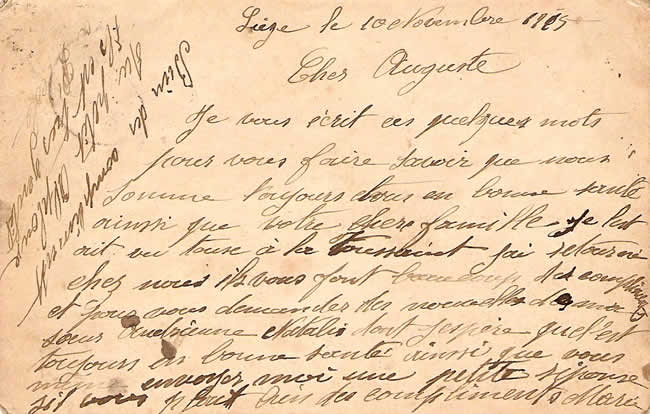 Liége le 10 Novembre 1915
Cher Auguste
Je vous écrit ces quelques mots
pour vous faire savoir que nous
somme toujours tous en bonne santé
ainsi que votre chere famille Je les
ait vu tous à la toussaint jai retourné
chez nous ils vous font beaucoup des compliments
et pour vous demander des nouvelles de ma
sœur Natalis dont j'espère quel'est
toujours en bonne santé ainsi que vous
même envoyez moi une petite réponse
sil vous plait bien des compliments Maria
Bien des compliments
du petit Alphonse